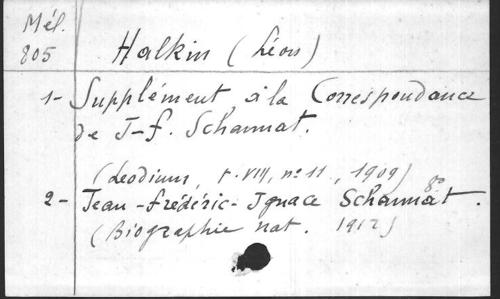 Mél.
805
Halkin (Léon)
1- Supplément à la Correspondance
de J-f. Schannat.
(Leodium, t. VIII, n° 11, 1909)
8°
2- Jean-frédéric-Ignace Schannat.
(Biographie nat. 1912)